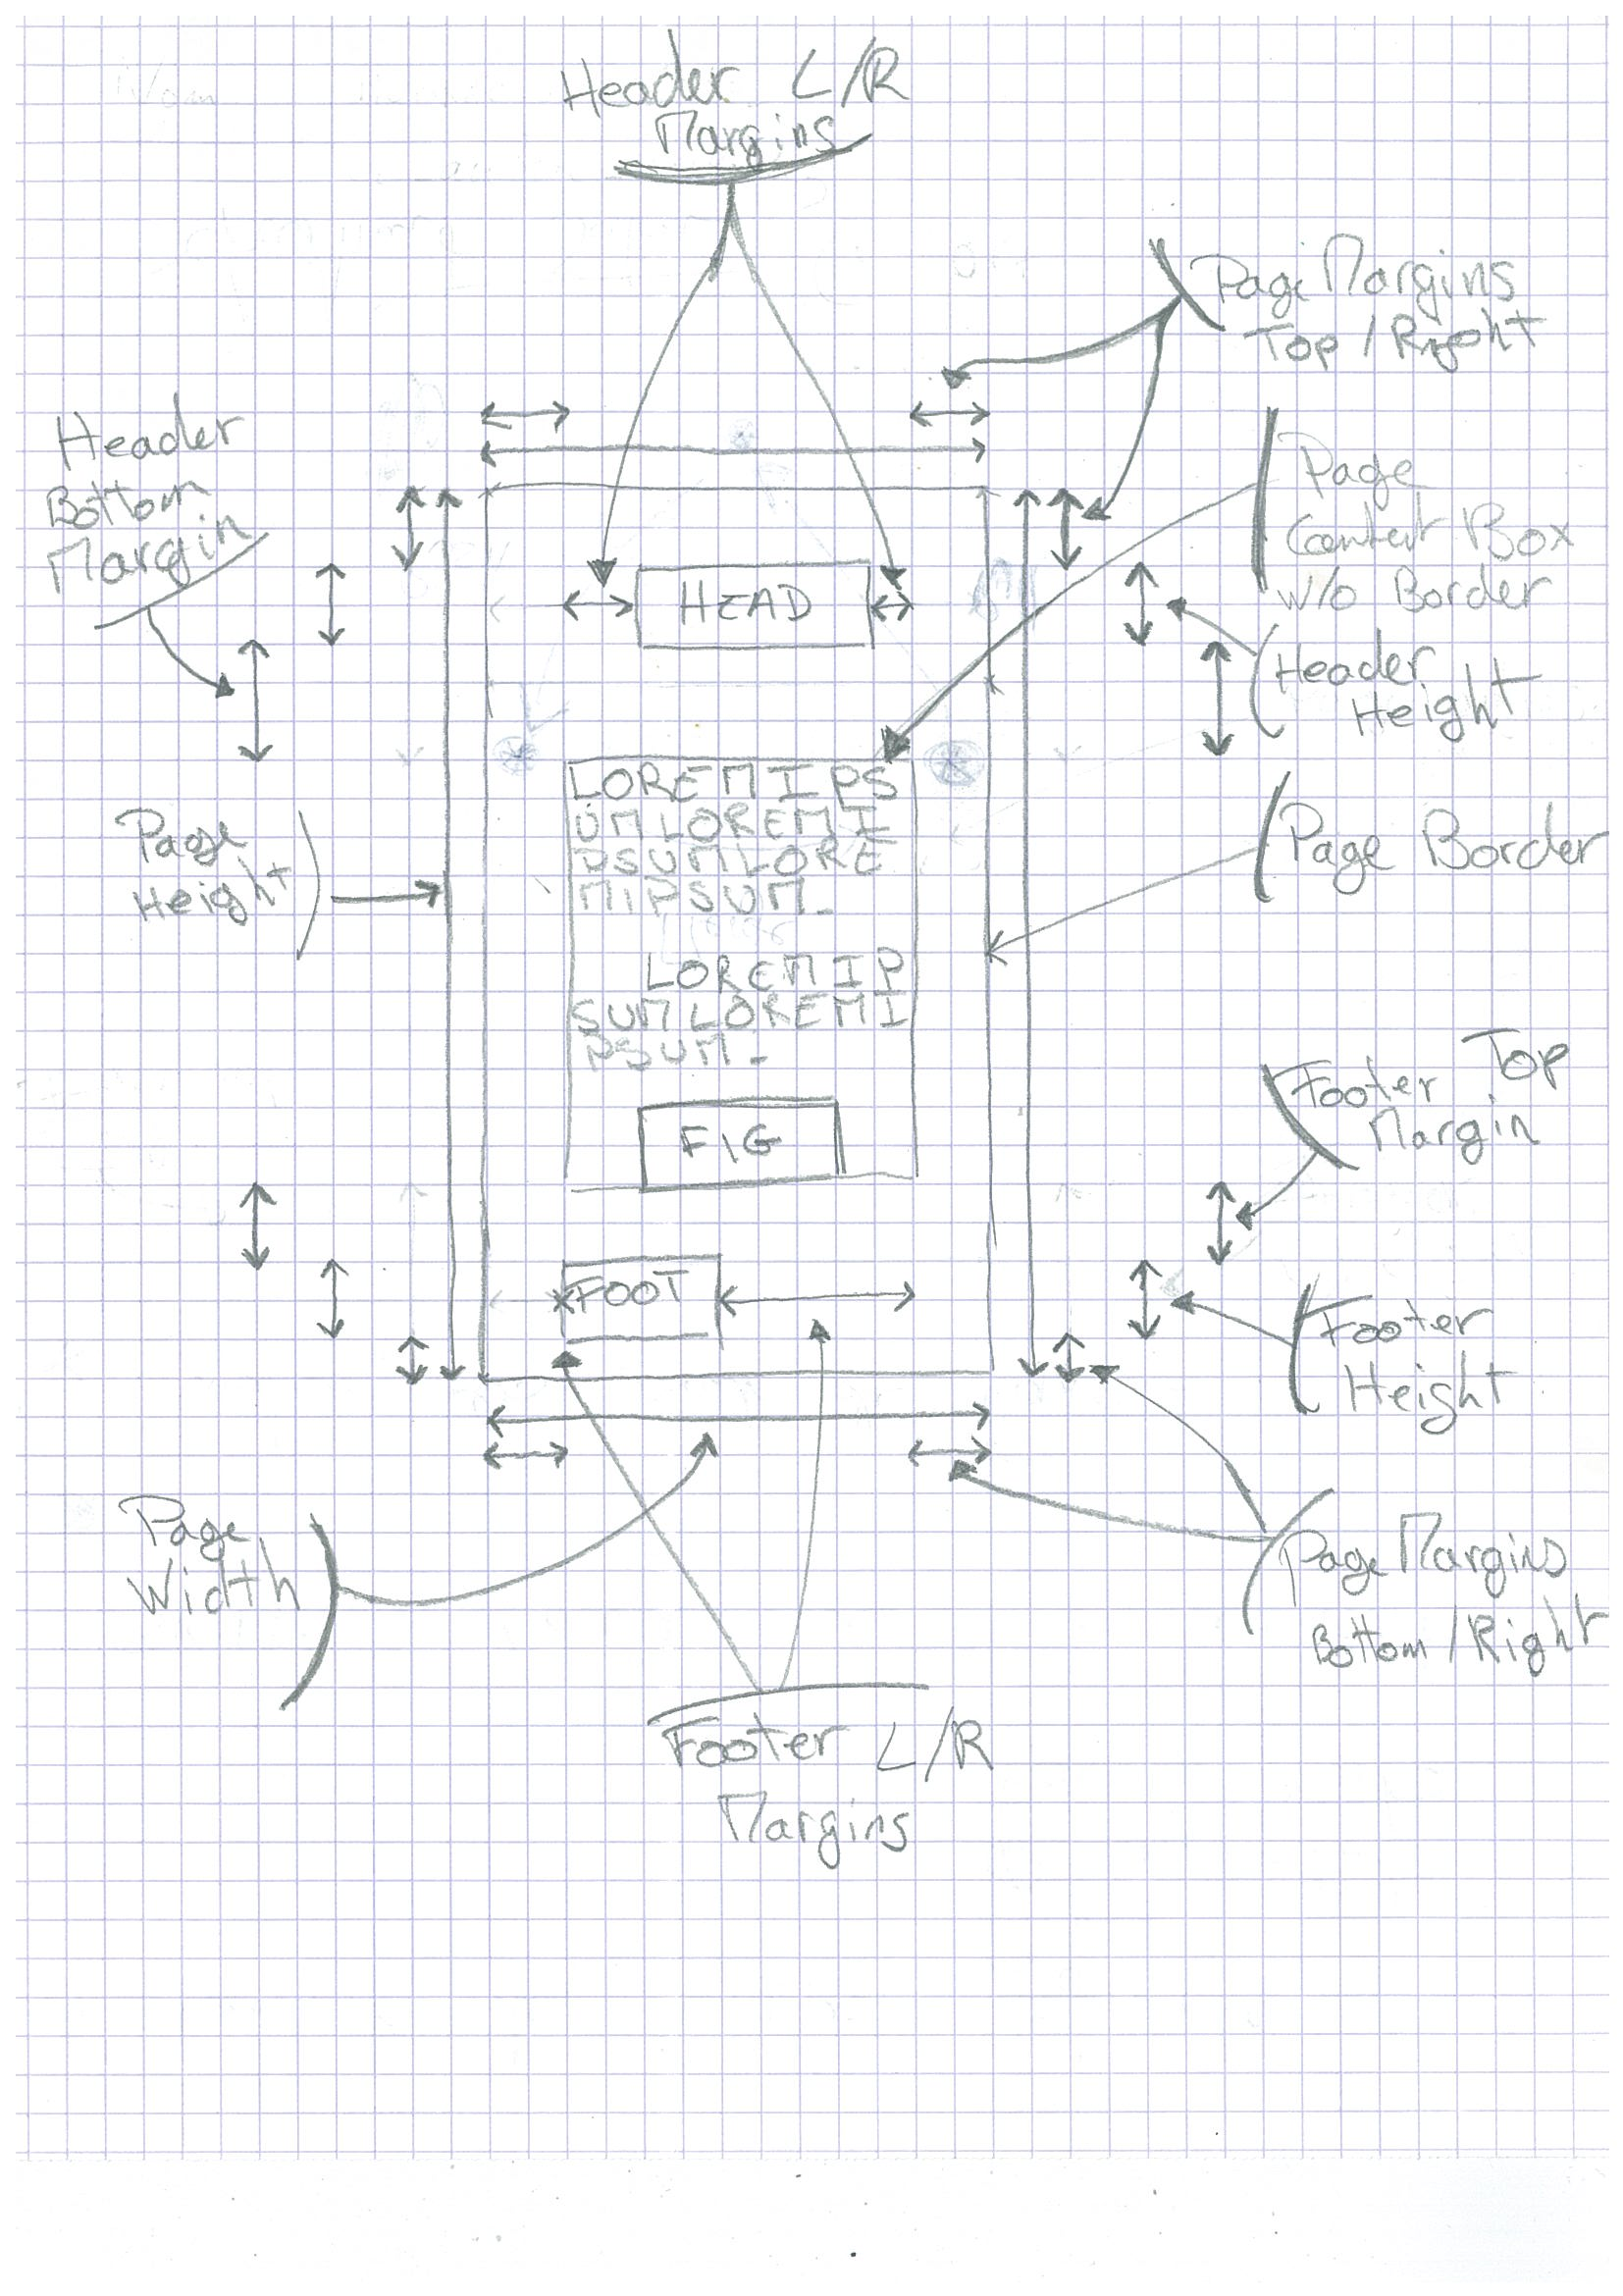 Header L/R
Margins
Page Margins
Top / Right
Header
Bottom
Margin
Page
Content Box
w/o Border
HEAD
Header
Height
LOREMIPS
UMLOREMI
PSUMLORE
MIPSUM.
Page
Height
Page Border
LOREMIP
SUMLOREMI
PSUM.
Footer Top
Margin
FIG
FOOT
Footer
Height
Page
Width
Page Margins
Bottom / Right
Footer L/R
Margins